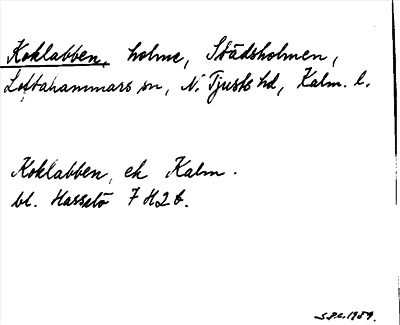 Koklabben, holme, Städsholmen,
Loftahammars sn, N. Tjusts hd, Kalm. l.
Koklabben, ek Kalm.
bl. Hasselö 7 H2b.
S.P.C. 1959.